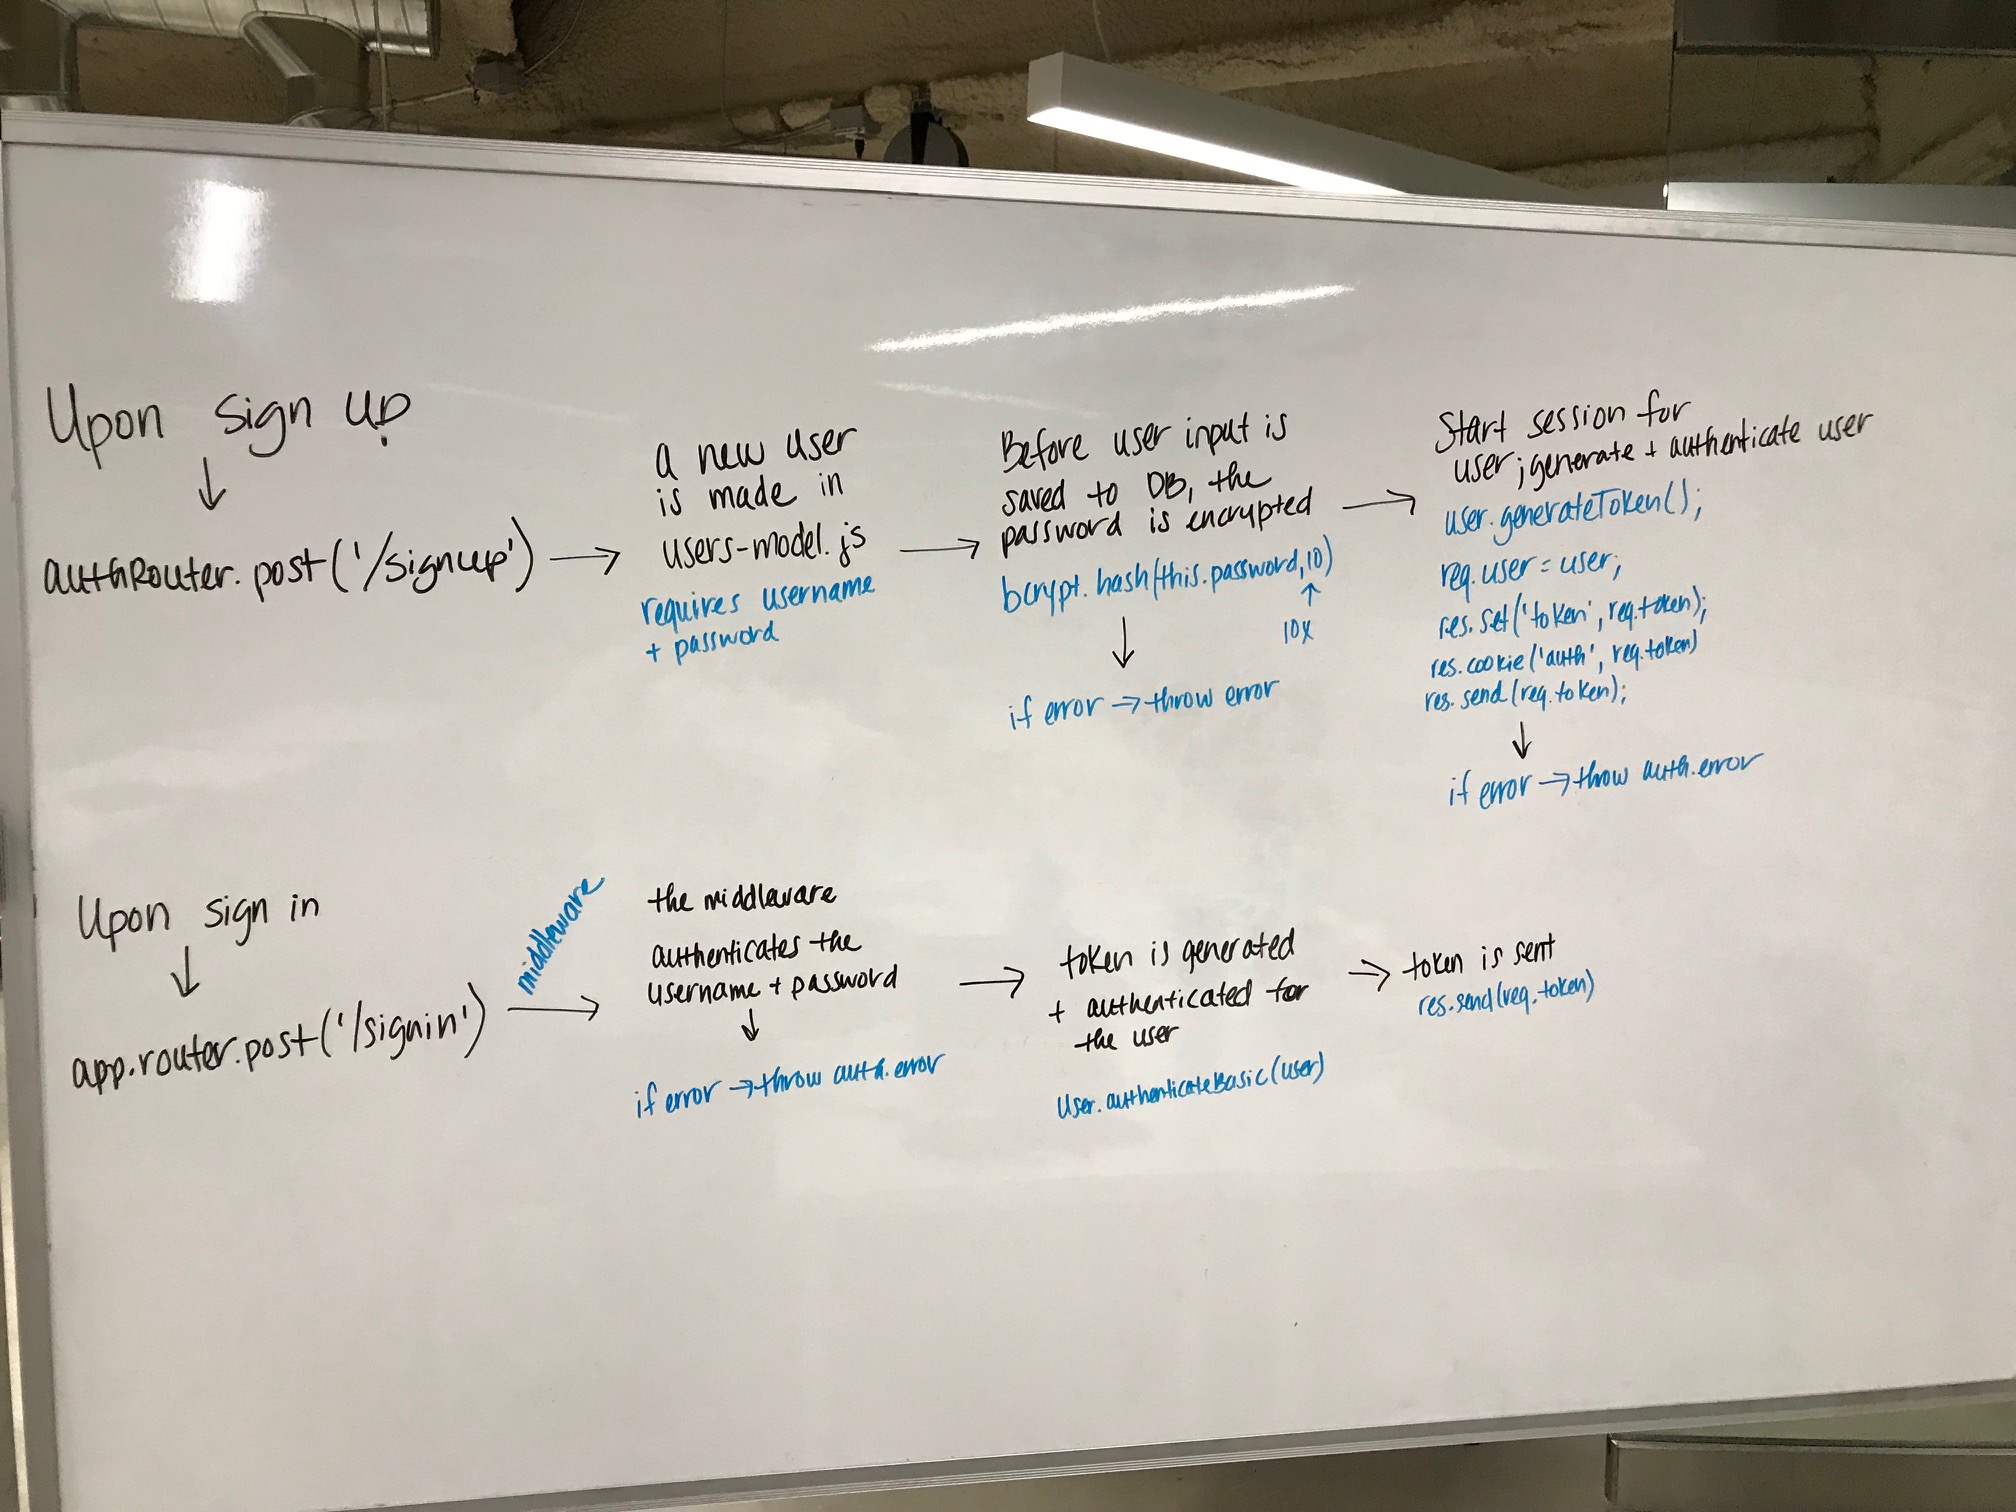 Upon sign up
↓
authRouter.post('/signup') →
a new user
is made in
users-model.js
requires username
+ password
→
Before user input is
saved to DB, the
password is encrypted
bcrypt.hash(this.password,10)
↑
10x
↓
if error → throw error
→
Start session for
user; generate + authenticate user
user.generateToken();
req.user = user;
res.set('token', req.token);
res.cookie('auth', req.token)
res.send(req.token);
↓
if error → throw auth.error
Upon sign in
↓
app.router.post('/signin')
middleware
→
the middleware
authenticates the
username + password
↓
if error → throw auth.error
→
token is generated
+ authenticated for
the user
User.authenticateBasic(user)
→
token is sent
res.send(req.token)